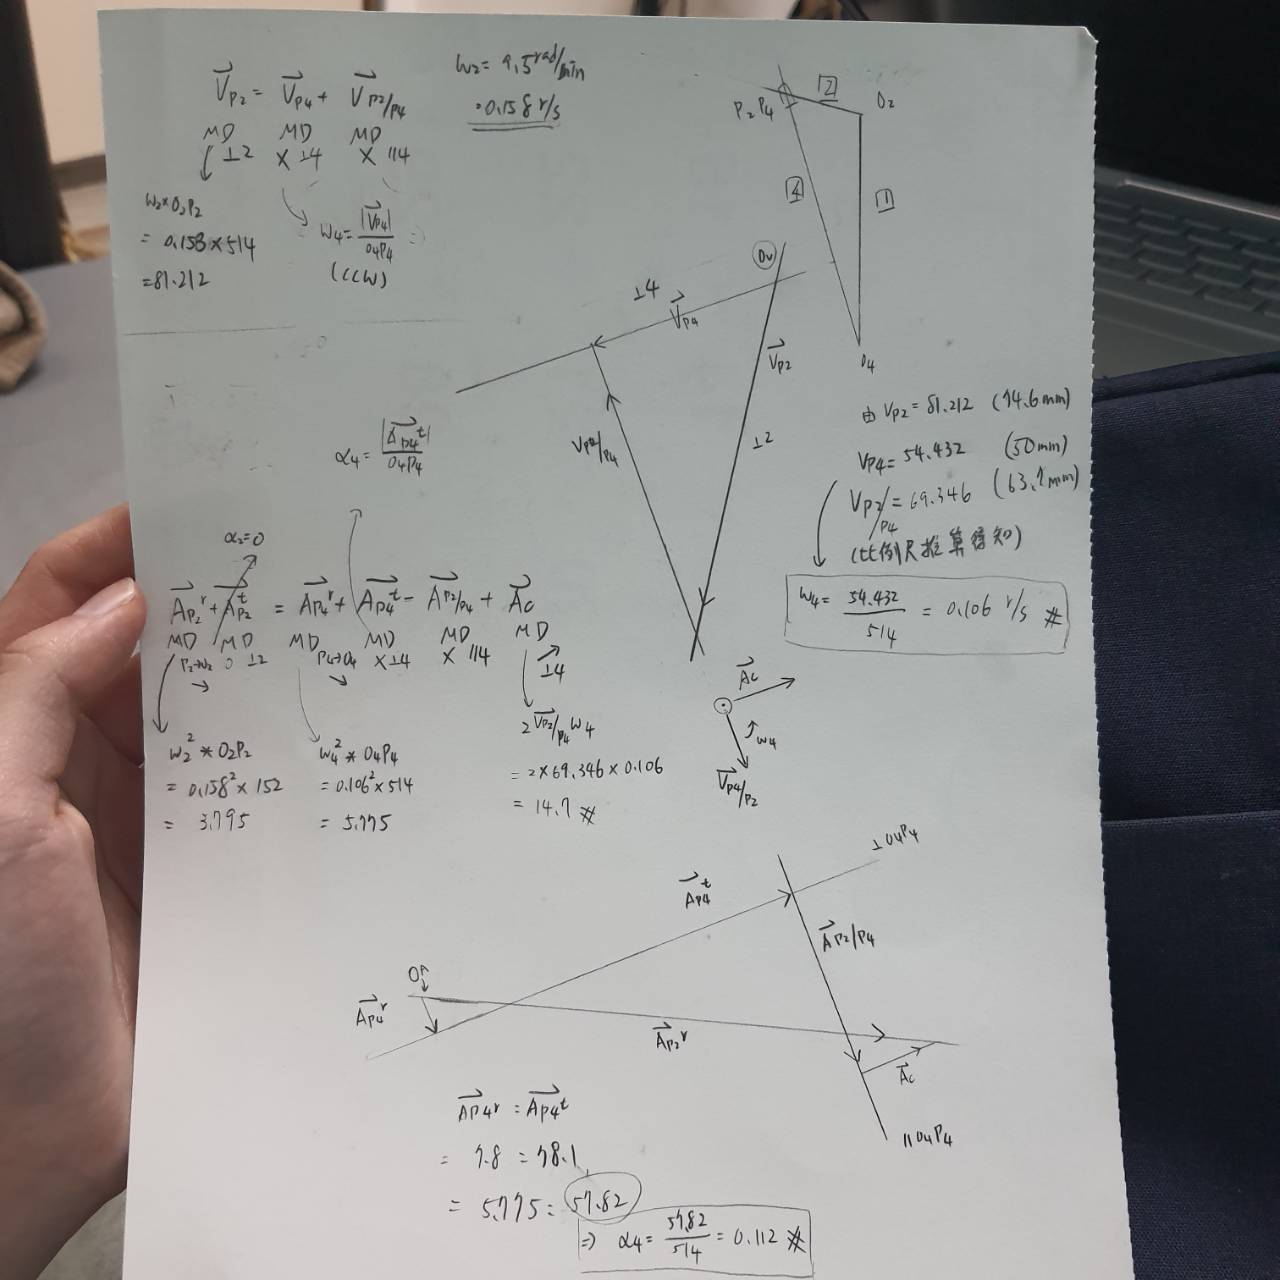 V⃗P2 = V⃗P4 + V⃗P2/P4
MD MD MD
⊥2 X ⊥4 X //4
W2 = 9.5 rad/min
= 0.158 r/s
W2 × O2P2
= 0.158 × 514
= 81.212
W4 = |V⃗P4| / O4P4
(CCW)
P2 P4
2
O2
4
1
O4
Ov
⊥4
V⃗P4
V⃗P2
VP2/P4
⊥2
由 VP2 = 81.212 (74.6mm)
VP4 = 54.432 (50mm)
VP2/P4 = 69.346 (63.7mm)
(比例尺推算得知)
W4 = 54.432 / 514 = 0.106 r/s #
α4 = |A⃗P4ᵗ| / O4P4
α2=0
A⃗P2ʳ + A⃗P2ᵗ = A⃗P4ʳ + A⃗P4ᵗ - A⃗P2/P4 + A⃗c
MD MD MD MD MD MD
P2→O2 0 ⊥2 P4→O4 X ⊥4 X //4 ⊥4
W2² * O2P2
= 0.158² × 152
= 3.795
W4² * O4P4
= 0.106² × 514
= 5.775
2 V⃗P2/P4 W4
= 2 × 69.346 × 0.106
= 14.7 #
A⃗c
W4
V⃗P4/P2
⊥O4P4
A⃗P4ᵗ
A⃗P2/P4
A⃗P4ʳ
A⃗P2ʳ
A⃗c
//O4P4
A⃗P4ʳ = A⃗P4ᵗ
= 7.8 = 78.1
= 5.775 = 57.82
⇒ α4 = 57.82 / 514 = 0.112 #